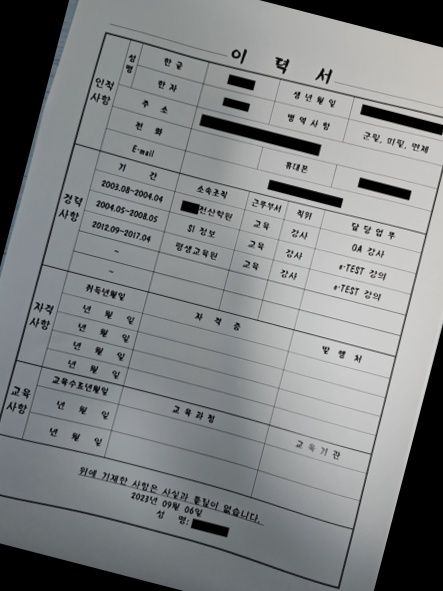 이 력 서
인적사항 성명 한 글 생 년 월 일
한 자 병 역 사 항 군필, 미필, 면제
주 소
전 화 휴대폰
E-mail
경력사항 기 간 소속조직 근무부서 직위 담 당 업 무
2003.08~2004.04 전산학원 교육 강사 OA 강사
2004.05~2008.05 SI 정보 교육 강사 e-TEST 강의
2012.09~2017.04 평생교육원 교육 강사 e-TEST 강의
~
~
자격사항 취득년월일 자 격 증 발 행 처
년 월 일
년 월 일
년 월 일
년 월 일
교육사항 교육수료년월일 교 육 과 정 교 육 기 관
년 월 일
년 월 일
위에 기재한 사항은 사실과 틀림이 없습니다.
2023년 09월 06일
성 명: